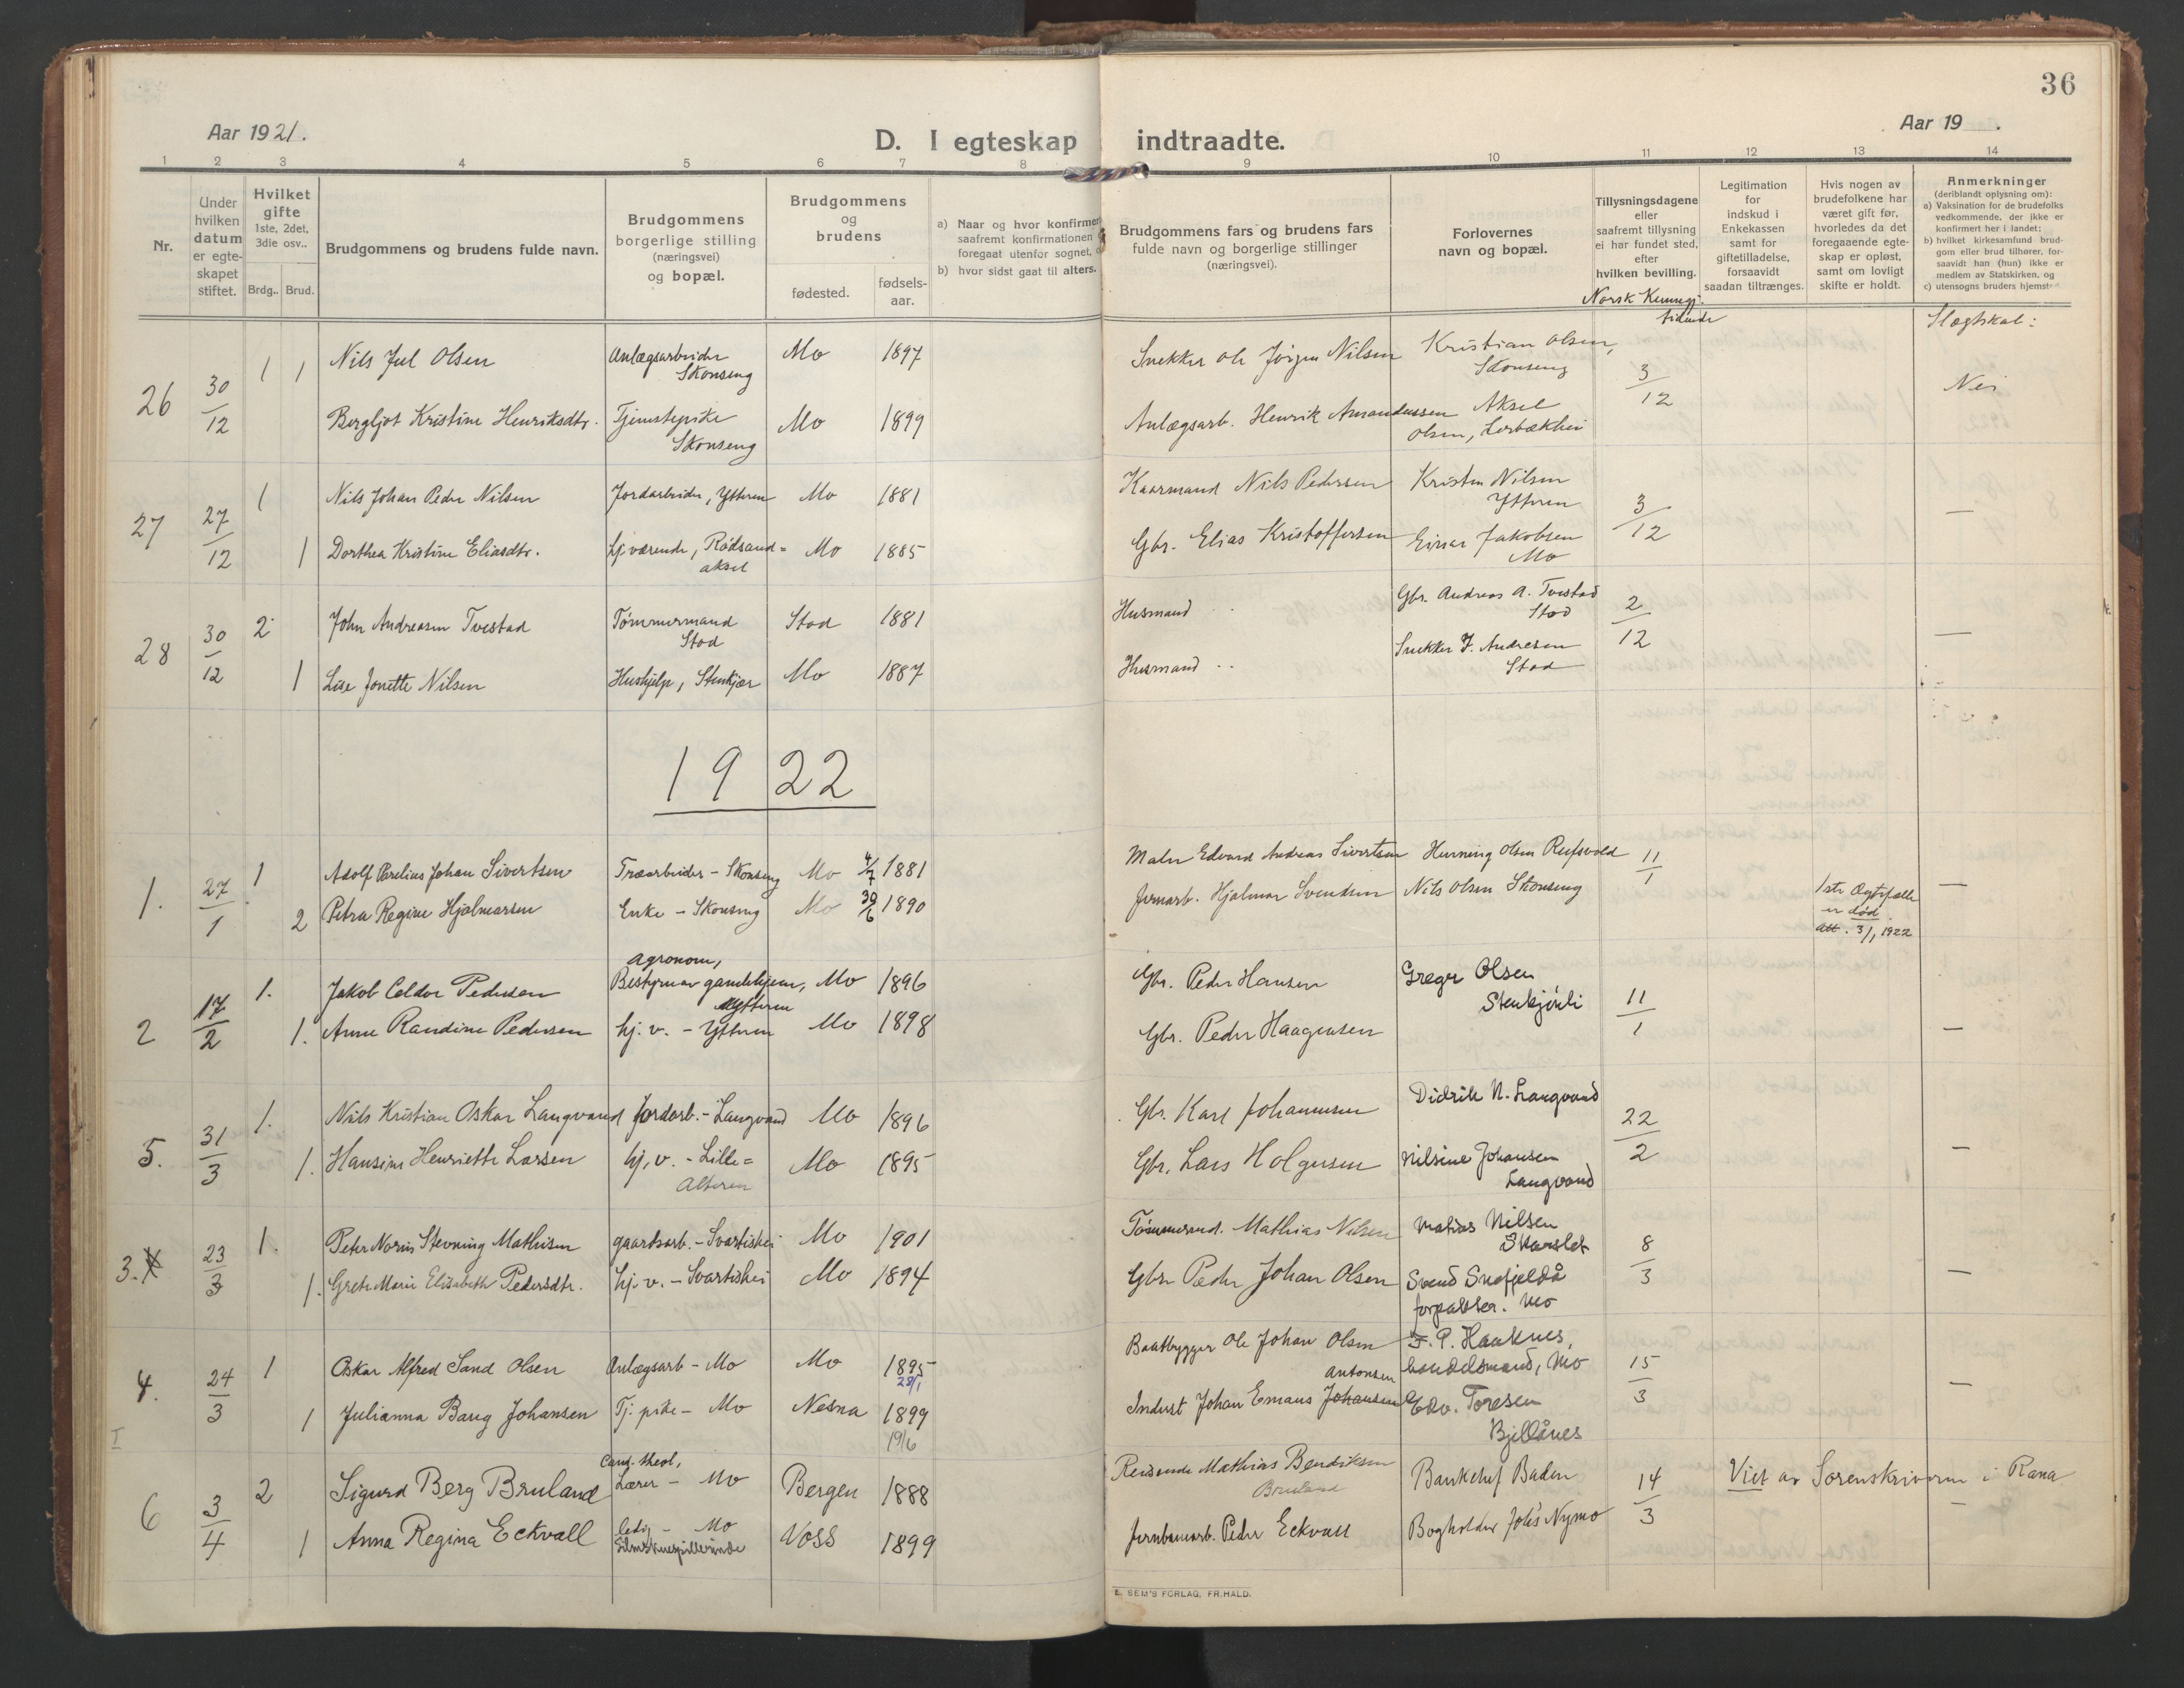 36
Aar 1921.
D. I egteskap indtraadte.
Aar 19 .
1 2 3 4 5 6 7 8 9 10 11 12 13 14
Nr.
Under hvilken datum er egte-skapet stiftet.
Hvilket gifte 1ste, 2det, 3die osv..
Brdg.. Brud.
Brudgommens og brudens fulde navn.
Brudgommens borgerlige stilling (næringsvei) og bopæl.
Brudgommens og brudens
fødested.
fødsels-aar.
a) Naar og hvor konfirmer
saafremt konfirmationen
foregaat utenfor sognet,
b) hvor sidst gaat til alters.
Brudgommens fars og brudens fars
fulde navn og borgerlige stillinger
(næringsvei).
Forlovernes
navn og bopæl.
Tillysningsdagene
eller
saafremt tillysning
ei har fundet sted,
efter
hvilken bevilling.
Legitimation
for
indskud i
Enkekassen
samt for
giftetilladelse,
forsaavidt
saadan tiltrænges.
Hvis nogen av
brudefolkene har
været gift før,
hvorledes da det
foregaaende egte-
skap er opløst,
samt om lovligt
skifte er holdt.
Anmerkninger
(deriblandt oplysning om):
a) Vaksination for de brudefolks
vedkommende, der ikke er
konfirmert her i landet;
b) hvilket kirkesamfund brud-
gom eller brud tilhører, for-
saavidt han (hun) ikke er
medlem av Statskirken, og
c) utensogns bruders hjemsted.
Norsk Kunngj.
tidende
Slægtskal:
26 30/12 1 1 Nils Jul Olsen Anlægsarbeider Skonseng Mo 1897 Snekker Ole Jörgen Nilsen Kristian Olsen, Skonseng 3/12 Nei
Bergljot Kristine Henriksdtr. Tjenestepike Skonseng Mo 1899 Anlægsarb. Henrik Amandussen Aksel Olsen,
27 27/12 1 Nils Johan Peder Nilsen Jordarbeider, Ytteren Mo 1881 Kaarmand Nils Pedersen Kristen Nilsen Ytteren 3/12 —
1 Dorthea Kristine Eliasdtr. hj. værende, Rødsand= aksel Mo 1885 Gbr. Elias Kristoffersen Einar Jakobsen Mo
28 30/12 2 John Andreasen Tvestad Tømmermand Stod Stod 1881 Husmand Gbr. Andreas A. Tvestad Stod 2/12 —
1 Lise Jonette Nilsen Hushjelp, Stenkjær Mo 1887 Husmand Snekker J. Andresen Stod
1922
1. 27/1 1 Adolf Parelius Johan Sivertsen Træarbeider - Skonseng Mo 4/7 1881 Maler Edvard Andreas Sivertsen Henning Olsen Rufsvold 11/1 —
2 Petra Regine Hjalmarsen Enke - Skonseng Mo 30/6 1890 Jernarb. Hjalmar Svendsen Nils Olsen Skonseng 1ste Ægtefælle er død att. 3/1 1922
2 17/2 1. Jakob Celdor Pedersen Agronom, Bestyrer av gamlehjem, Ytteren Mo 1896 Gbr. Peder Hansen Greger Olsen Stenkjönli 11/1 —
1. Anne Randine Pedersen hj. v. - Ytteren Mo 1898 Gbr. Peder Haagensen
5. 31/3 1. Nils Kristian Oskar Langvand Jordarb. - Langvand Mo 1896 Gbr. Karl Johannesen Didrik N. Langvand 22/2 —
1. Hansine Henriette Larsen hj. v. - Lille= Alteren Mo 1895 Gbr. Lars Holgersen Nilsine Johansen Langvand
3. 23/3 1. Peter Norin Stevning Mathisen gaardsarb. - Svartishei Mo 1901 Tömmermd. Mathias Nilsen Matias Nilsen Skarslet 8/3 —
1. Grete Marie Elisabeth Pedersdtr. hj. v. - Svartishei Mo 1894 Gbr. Peder Johan Olsen Svend Snefjeldå forpakter. Mo
4. 24/3 1 Oskar Alfred Sand Olsen Anlægsarb - Mo Mo 1895 28/1 Baatbygger Ole Johan Olsen F. P. Haaknes, handelsmand, Mo 15/3 —
1 Julianna Baug Johansen Tj. pike - Mo Nesna 1899 19/6 Indust Johan Emaus Johansen Antonsen Edv. Toresen Bjellånes
I
6 3/4 2 Sigurd Berg Bruland Cand. theol, Lærer - Mo Bergen 1888 Reisende Mathias Bendiksen Bruland Bankchef Baden 14/3 Viet av Sorenskriveren i Rana
1 Anna Regina Eckvall ledig - Mo Filmskuespillerinde Voss 1899 Jernbanearb. Peder Eckvall Bogholder Johs Nymo —
E. SEM'S FORLAG, FR.HALD.